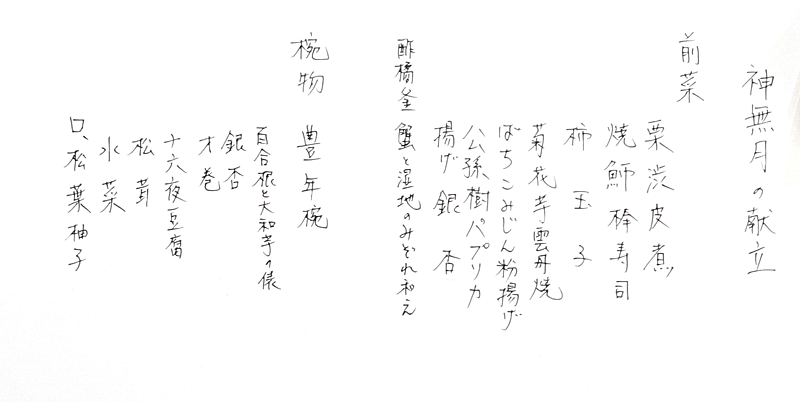 神無月の献立
前菜
栗渋皮煮
焼鰤棒寿司
柿玉子
菊花芋雲丹焼
ばちこみじん粉揚げ
公孫樹パプリカ
揚げ銀杏
酢橘釜 蟹と湿地のみぞれ和え
椀物 豊年椀
百合根と大和芋の俵
銀杏
才巻
十六夜豆腐
松茸
水菜
口、松葉柚子